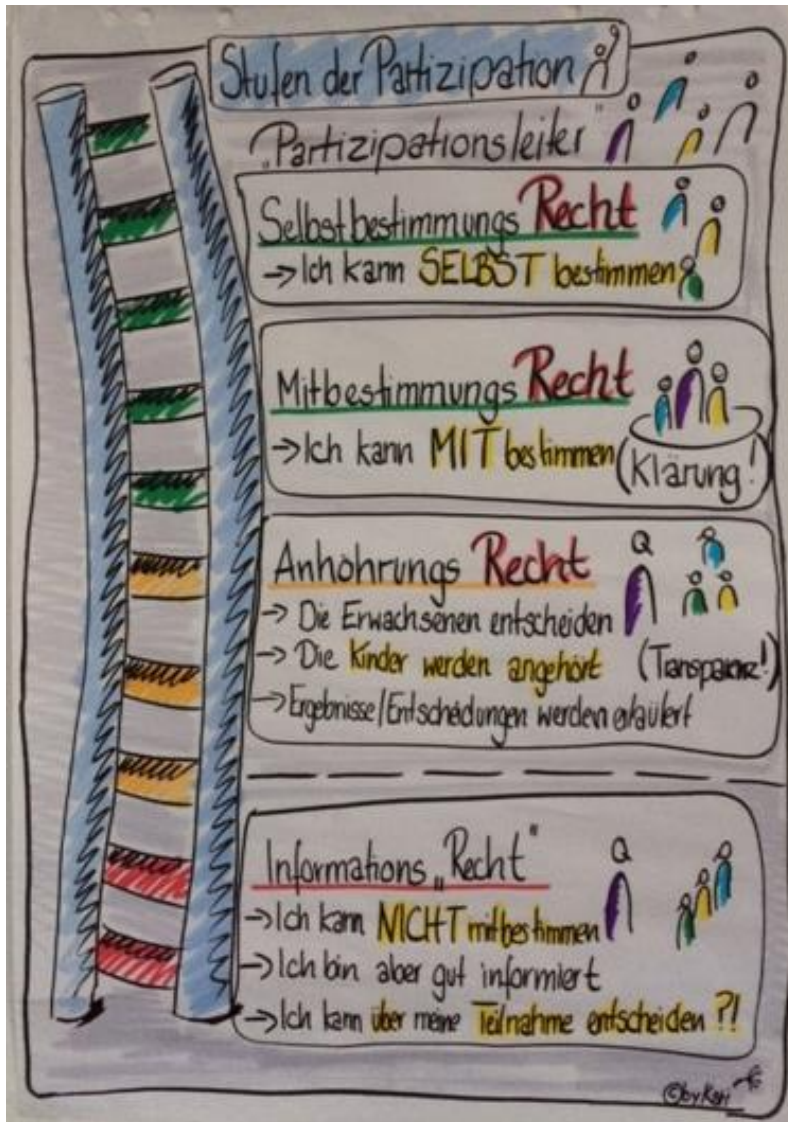 Stufen der Partizipation
"Partizipationsleiter"
Selbstbestimmungs Recht
→ Ich kann SELBST bestimmen
Mitbestimmungs Recht
→ Ich kann MIT bestimmen (Klärung!)
Anhöhrungs Recht
→ Die Erwachsenen entscheiden
→ Die Kinder werden angehört (Transparenz!)
→ Ergebnisse/Entscheidungen werden erläutert
Informations „Recht"
→ Ich kann NICHT mitbestimmen
→ Ich bin aber gut informiert
→ Ich kann über meine Teilnahme entscheiden ?!